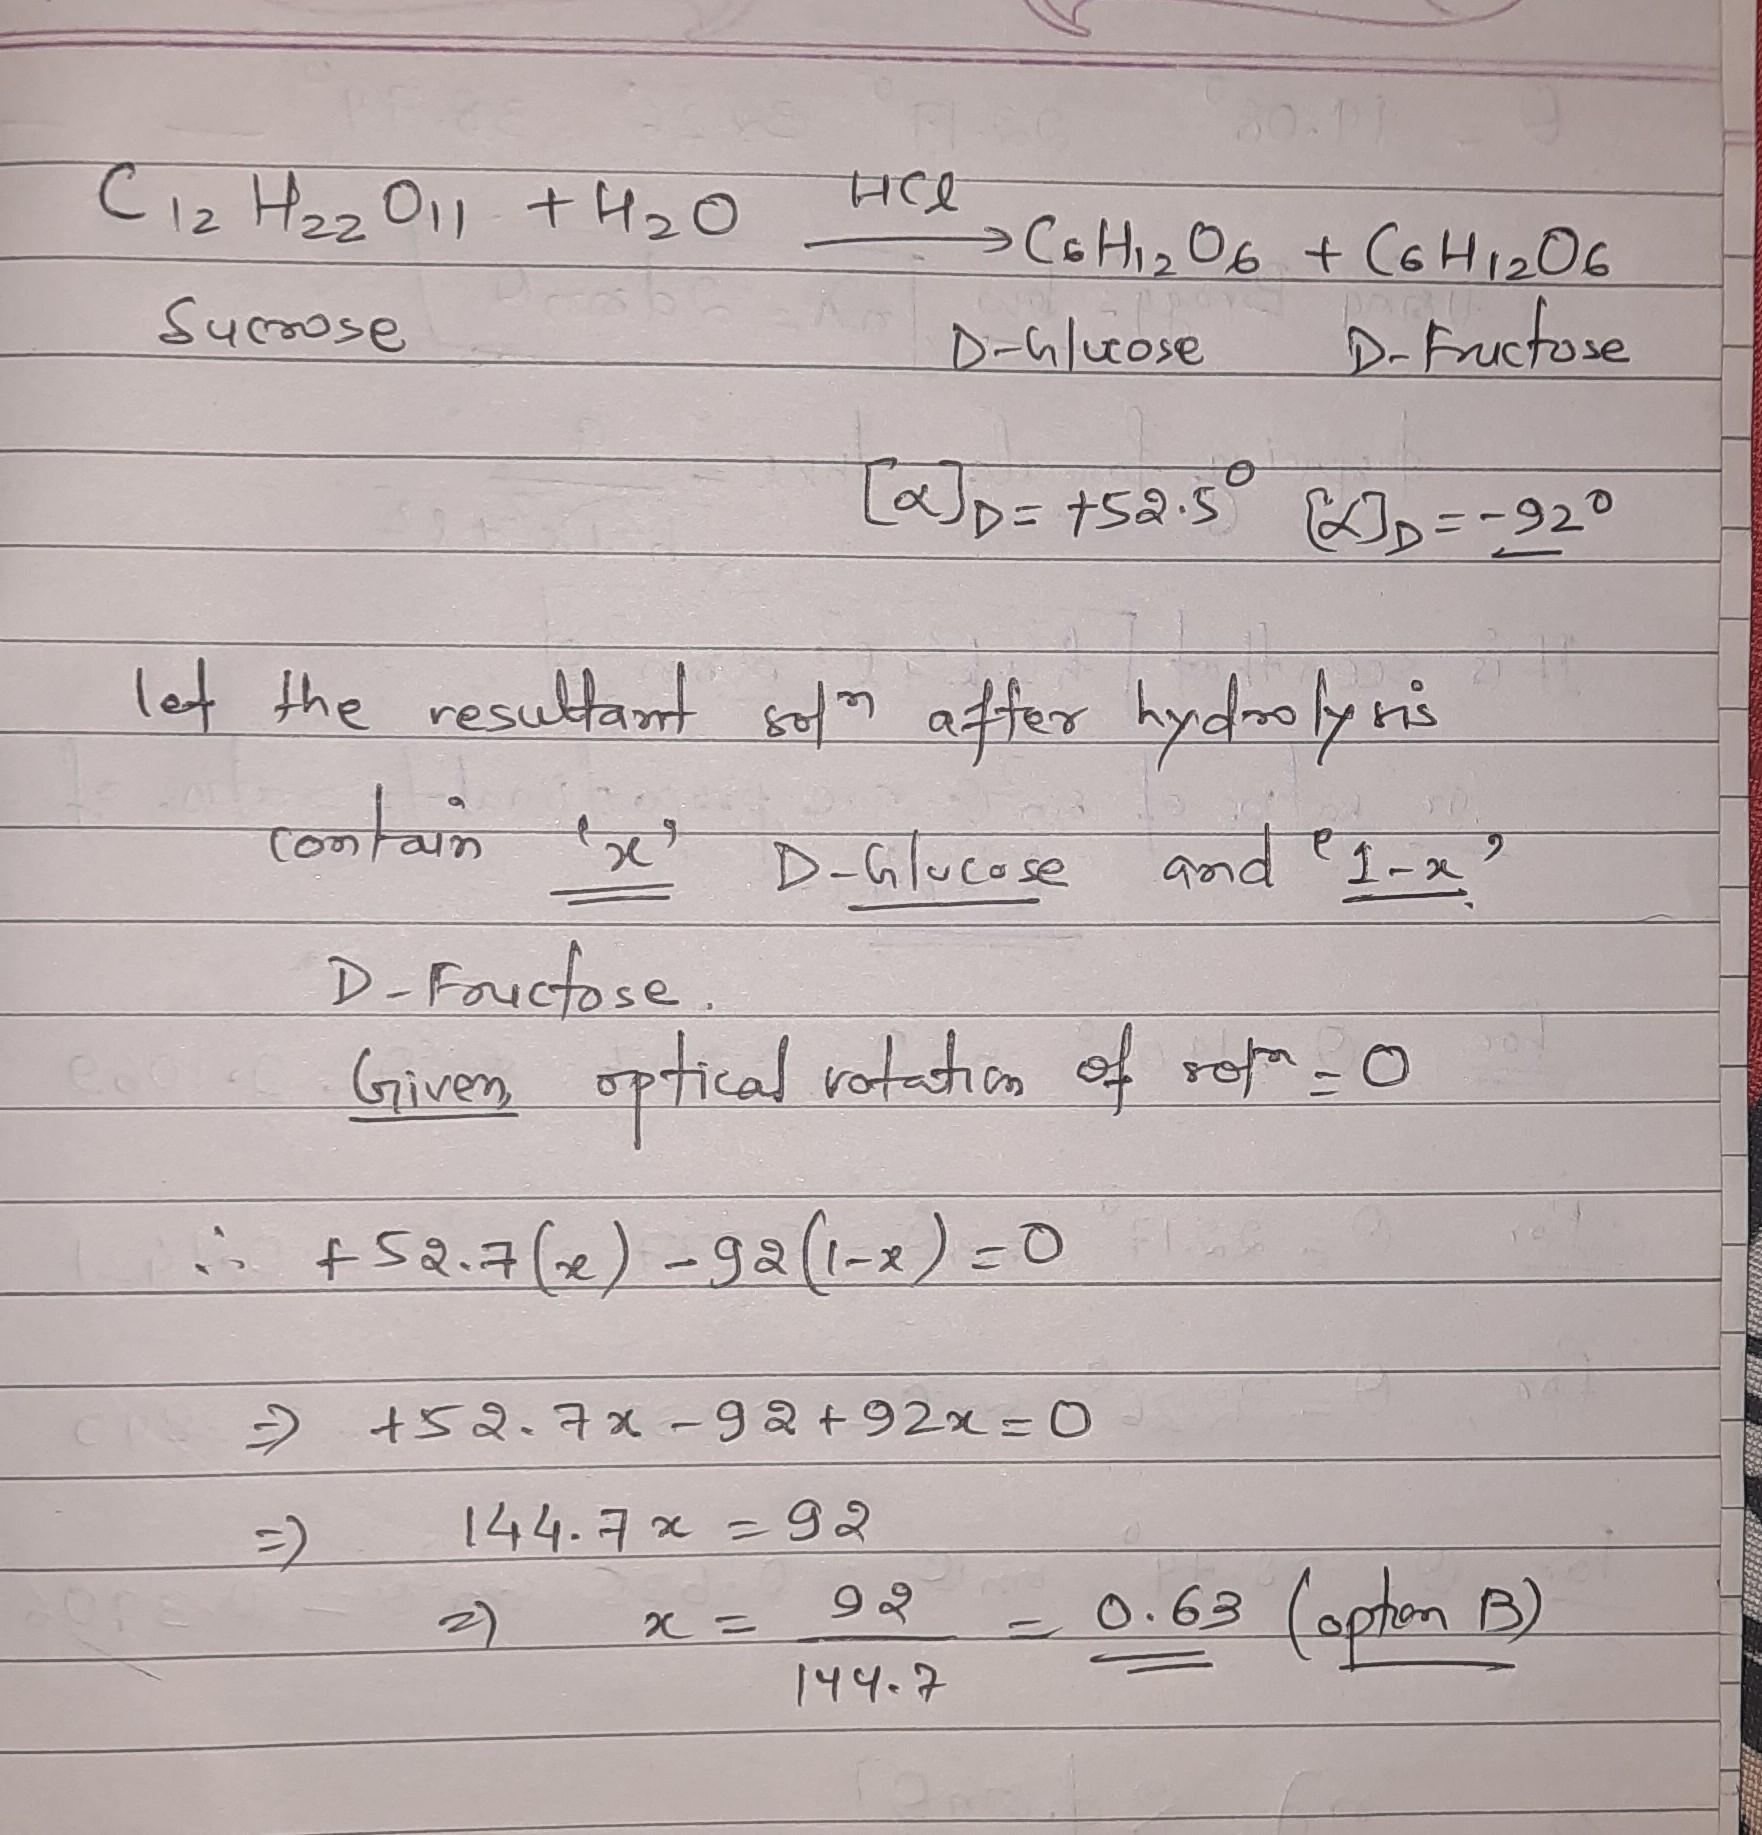 C12 H22 O11 + H2O HCl → C6H12O6 + C6H12O6
Sucrose D-Glucose D-Fructose
[α]D = +52.5° [α]D = -92°
let the resultant solⁿ after hydrolysis
contain 'x' D-Glucose and '1-x'
D-Fructose.
Given, optical rotation of solⁿ = 0
∴ +52.7(x) - 92(1-x) = 0
⇒ +52.7x - 92 + 92x = 0
⇒ 144.7x = 92
⇒ x = 92/144.7 = 0.63 (option B)